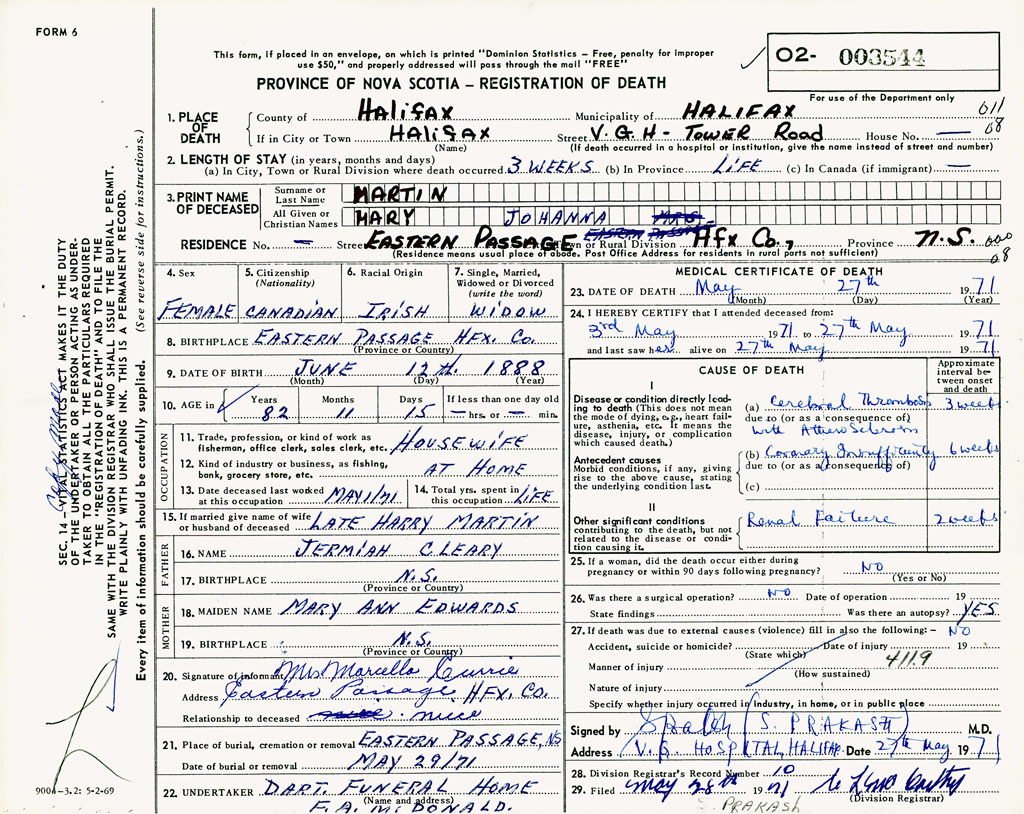 FORM 6
This form, if placed in an envelope, on which is printed "Dominion Statistics – Free, penalty for improper
use $50," and properly addressed will pass through the mail "FREE"
02- 003544
PROVINCE OF NOVA SCOTIA – REGISTRATION OF DEATH
For use of the Department only
011
08
1. PLACE OF DEATH
County of Halifax Municipality of HALIFAX
If in City or Town Halifax Street V.G.H - Tower Road House No. —
(Name) (If death occurred in a hospital or institution, give the name instead of street and number)
2. LENGTH OF STAY (in years, months and days)
(a) In City, Town or Rural Division where death occurred 3 WEEKS (b) In Province LIFE (c) In Canada (if immigrant) —
3. PRINT NAME OF DECEASED
Surname or Last Name MARTIN
All Given or Christian Names MARY JOHANNA MRS
EASTERN PASSAGE
RESIDENCE No. — Street EASTERN PASSAGE Town or Rural Division Hfx Co., Province N.S.
08
(Residence means usual place of abode. Post Office Address for residents in rural parts not sufficient)
4. Sex
FEMALE
5. Citizenship
(Nationality)
CANADIAN
6. Racial Origin
IRISH
7. Single, Married,
Widowed or Divorced
(write the word)
WIDOW
8. BIRTHPLACE EASTERN PASSAGE HFX. CO.
(Province or Country)
9. DATE OF BIRTH JUNE 12th. 1888
(Month) (Day) (Year)
10. AGE in Years Months Days If less than one day old
82 11 15 — hrs. or — min.
OCCUPATION
11. Trade, profession, or kind of work as
fisherman, office clerk, sales clerk, etc. HOUSEWIFE
12. Kind of industry or business, as fishing,
bank, grocery store, etc. AT HOME
13. Date deceased last worked
at this occupation MAY 1/71
14. Total yrs. spent in
this occupation LIFE
15. If married give name of wife
or husband of deceased LATE HARRY MARTIN
FATHER
16. NAME JERMIAH CLEARY
17. BIRTHPLACE N.S.
(Province or Country)
MOTHER
18. MAIDEN NAME MARY ANN EDWARDS
19. BIRTHPLACE N.S.
(Province or Country)
20. Signature of informant Mrs Marcella Currie
Address Eastern Passage HFX. CO.
Relationship to deceased niece
21. Place of burial, cremation or removal EASTERN PASSAGE, NS
Date of burial or removal MAY 29/71
22. UNDERTAKER DART. FUNERAL HOME
(Name and address)
F.A. McDONALD.
MEDICAL CERTIFICATE OF DEATH
23. DATE OF DEATH May 27th 1971
(Month) (Day) (Year)
24. I HEREBY CERTIFY that I attended deceased from:
3rd May 1971 to 27th May 1971
and last saw her alive on 27th May 1971
CAUSE OF DEATH
Approximate
interval between
onset
and death
I
Disease or condition directly leading
to death (This does not mean
the mode of dying, e.g., heart failure,
asthenia, etc. It means the
disease, injury, or complication
which caused death.)
(a) Cerebral Thrombosis 3 weeks
due to (or as a consequence of)
with Atherosclerosis
Antecedent causes
Morbid conditions, if any, giving
rise to the above cause, stating
the underlying condition last.
(b) Coronary Insufficiency 6 weeks
due to (or as a consequence of)
(c)
II
Other significant conditions
contributing to the death, but not
related to the disease or condition
causing it.
Renal Failure 2 weeks
25. If a woman, did the death occur either during
pregnancy or within 90 days following pregnancy? NO
(Yes or No)
26. Was there a surgical operation? NO Date of operation 19
State findings Was there an autopsy? YES
27. If death was due to external causes (violence) fill in also the following: – NO
Accident, suicide or homicide? Date of injury 19
(State which)
Manner of injury 4119
(How sustained)
Nature of injury
Specify whether injury occurred in industry, in home, or in public place
Signed by (S. PRAKASH) M.D.
Address V.G. HOSPITAL HALIFAX Date 27th May 1971
28. Division Registrar's Record Number 10
29. Filed May 28th 1971
(Division Registrar)
S. PRAKASH
SEC. 14 – VITAL STATISTICS ACT MAKES IT THE DUTY
OF THE UNDERTAKER OR PERSON ACTING AS UNDERTAKER
TO OBTAIN ALL THE PARTICULARS REQUIRED
IN THE "REGISTRATION OF DEATH" AND TO FILE THE
SAME WITH THE DIVISION REGISTRAR WHO SHALL ISSUE THE BURIAL PERMIT.
WRITE PLAINLY WITH UNFADING INK. THIS IS A PERMANENT RECORD.
Every item of information should be carefully supplied. (See reverse side for instructions.)
900A-3.2: 5-2-69